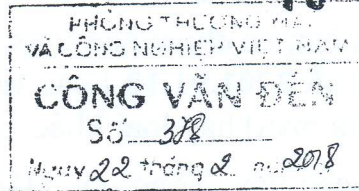 PHÒNG THƯƠNG MẠI
VÀ CÔNG NGHIỆP VIỆT NAM
CÔNG VĂN ĐẾN
Số 378
Ngày 22 tháng 2 năm 2018